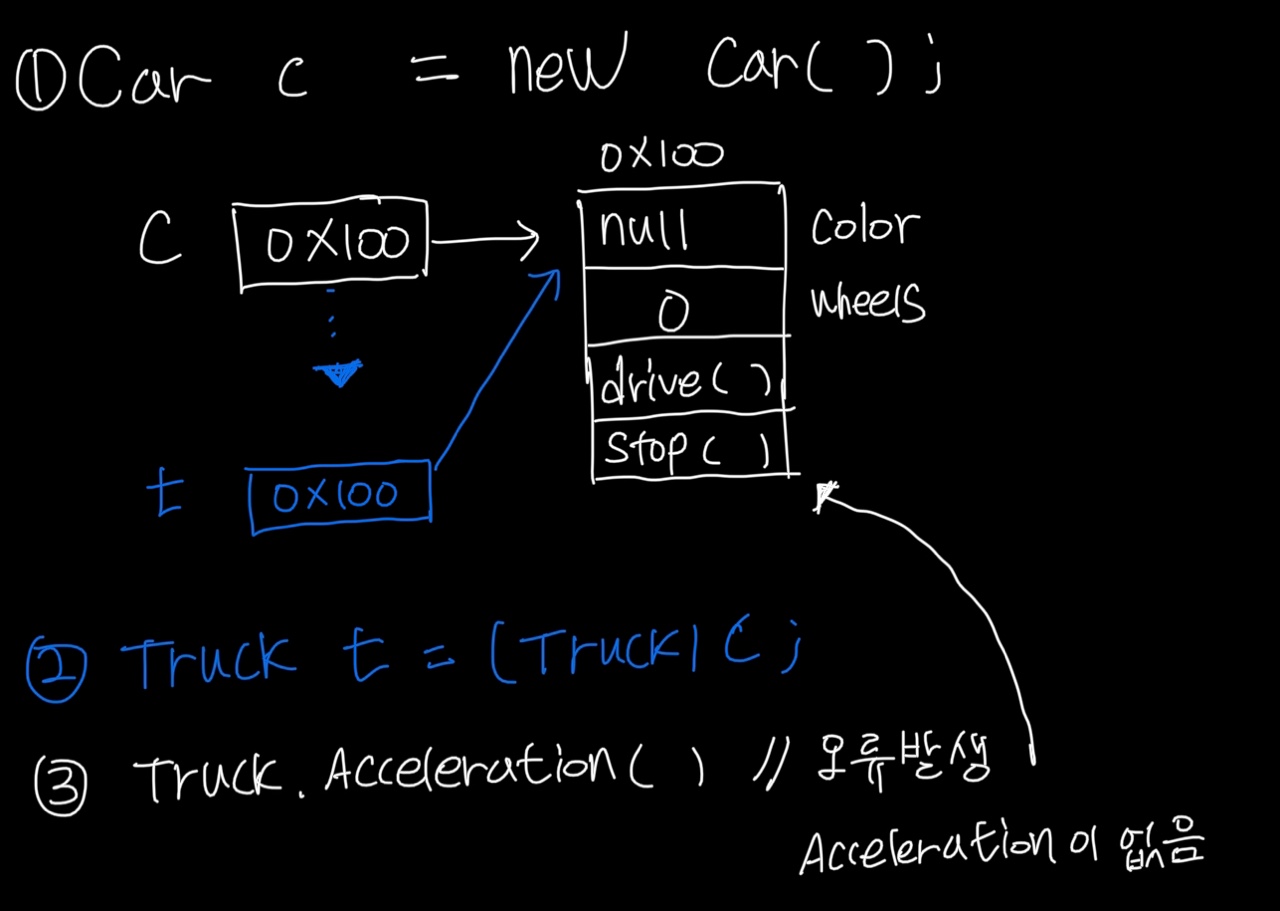 ① Car c = new Car();
0X100
C 0X100 null color
0 wheels
drive()
stop()
t 0X100
② Truck t = (Truck) C;
③ Truck. Acceleration() // 오류발생
Acceleration이 없음